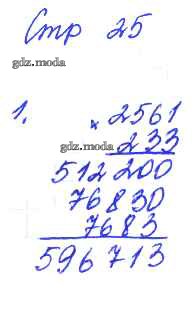 Стр 25
gdz.moda
1.
× 2561
233
512 200
76830
7683
596 713
gdz.moda